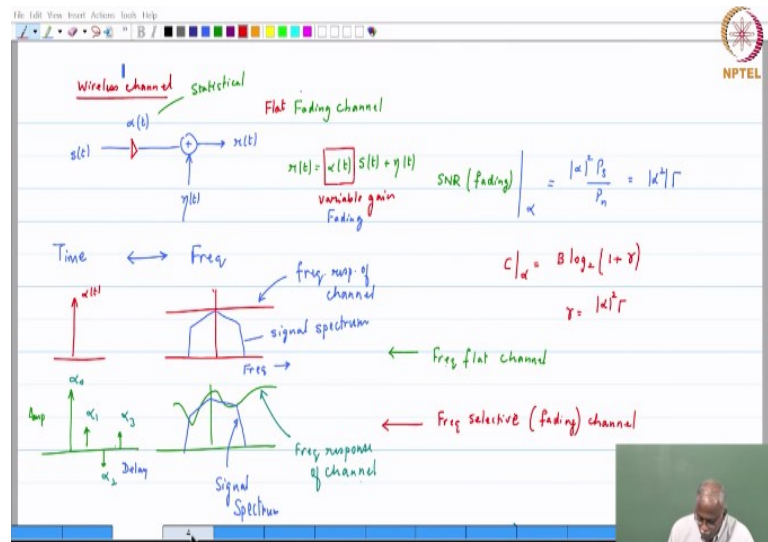 File Edit View Insert Actions Tools Help
NPTEL
Wireless channel
Statistical
α(t)
Flat Fading channel
s(t)
+
r(t)
η(t)
r(t) = α(t) s(t) + η(t)
variable gain
Fading
SNR (fading) |α = |α|² Ps / Pn = |α²| Γ
C|α = B log₂ (1 + γ)
γ = |α|² Γ
Time ↔ Freq
freq resp. of
channel
α(t)
signal spectrum
Freq →
← Freq flat channel
α₀
Amp
α₁
α₃
α₂
Delay
← Freq selective (fading) channel
Freq response
of channel
Signal
Spectrum
4